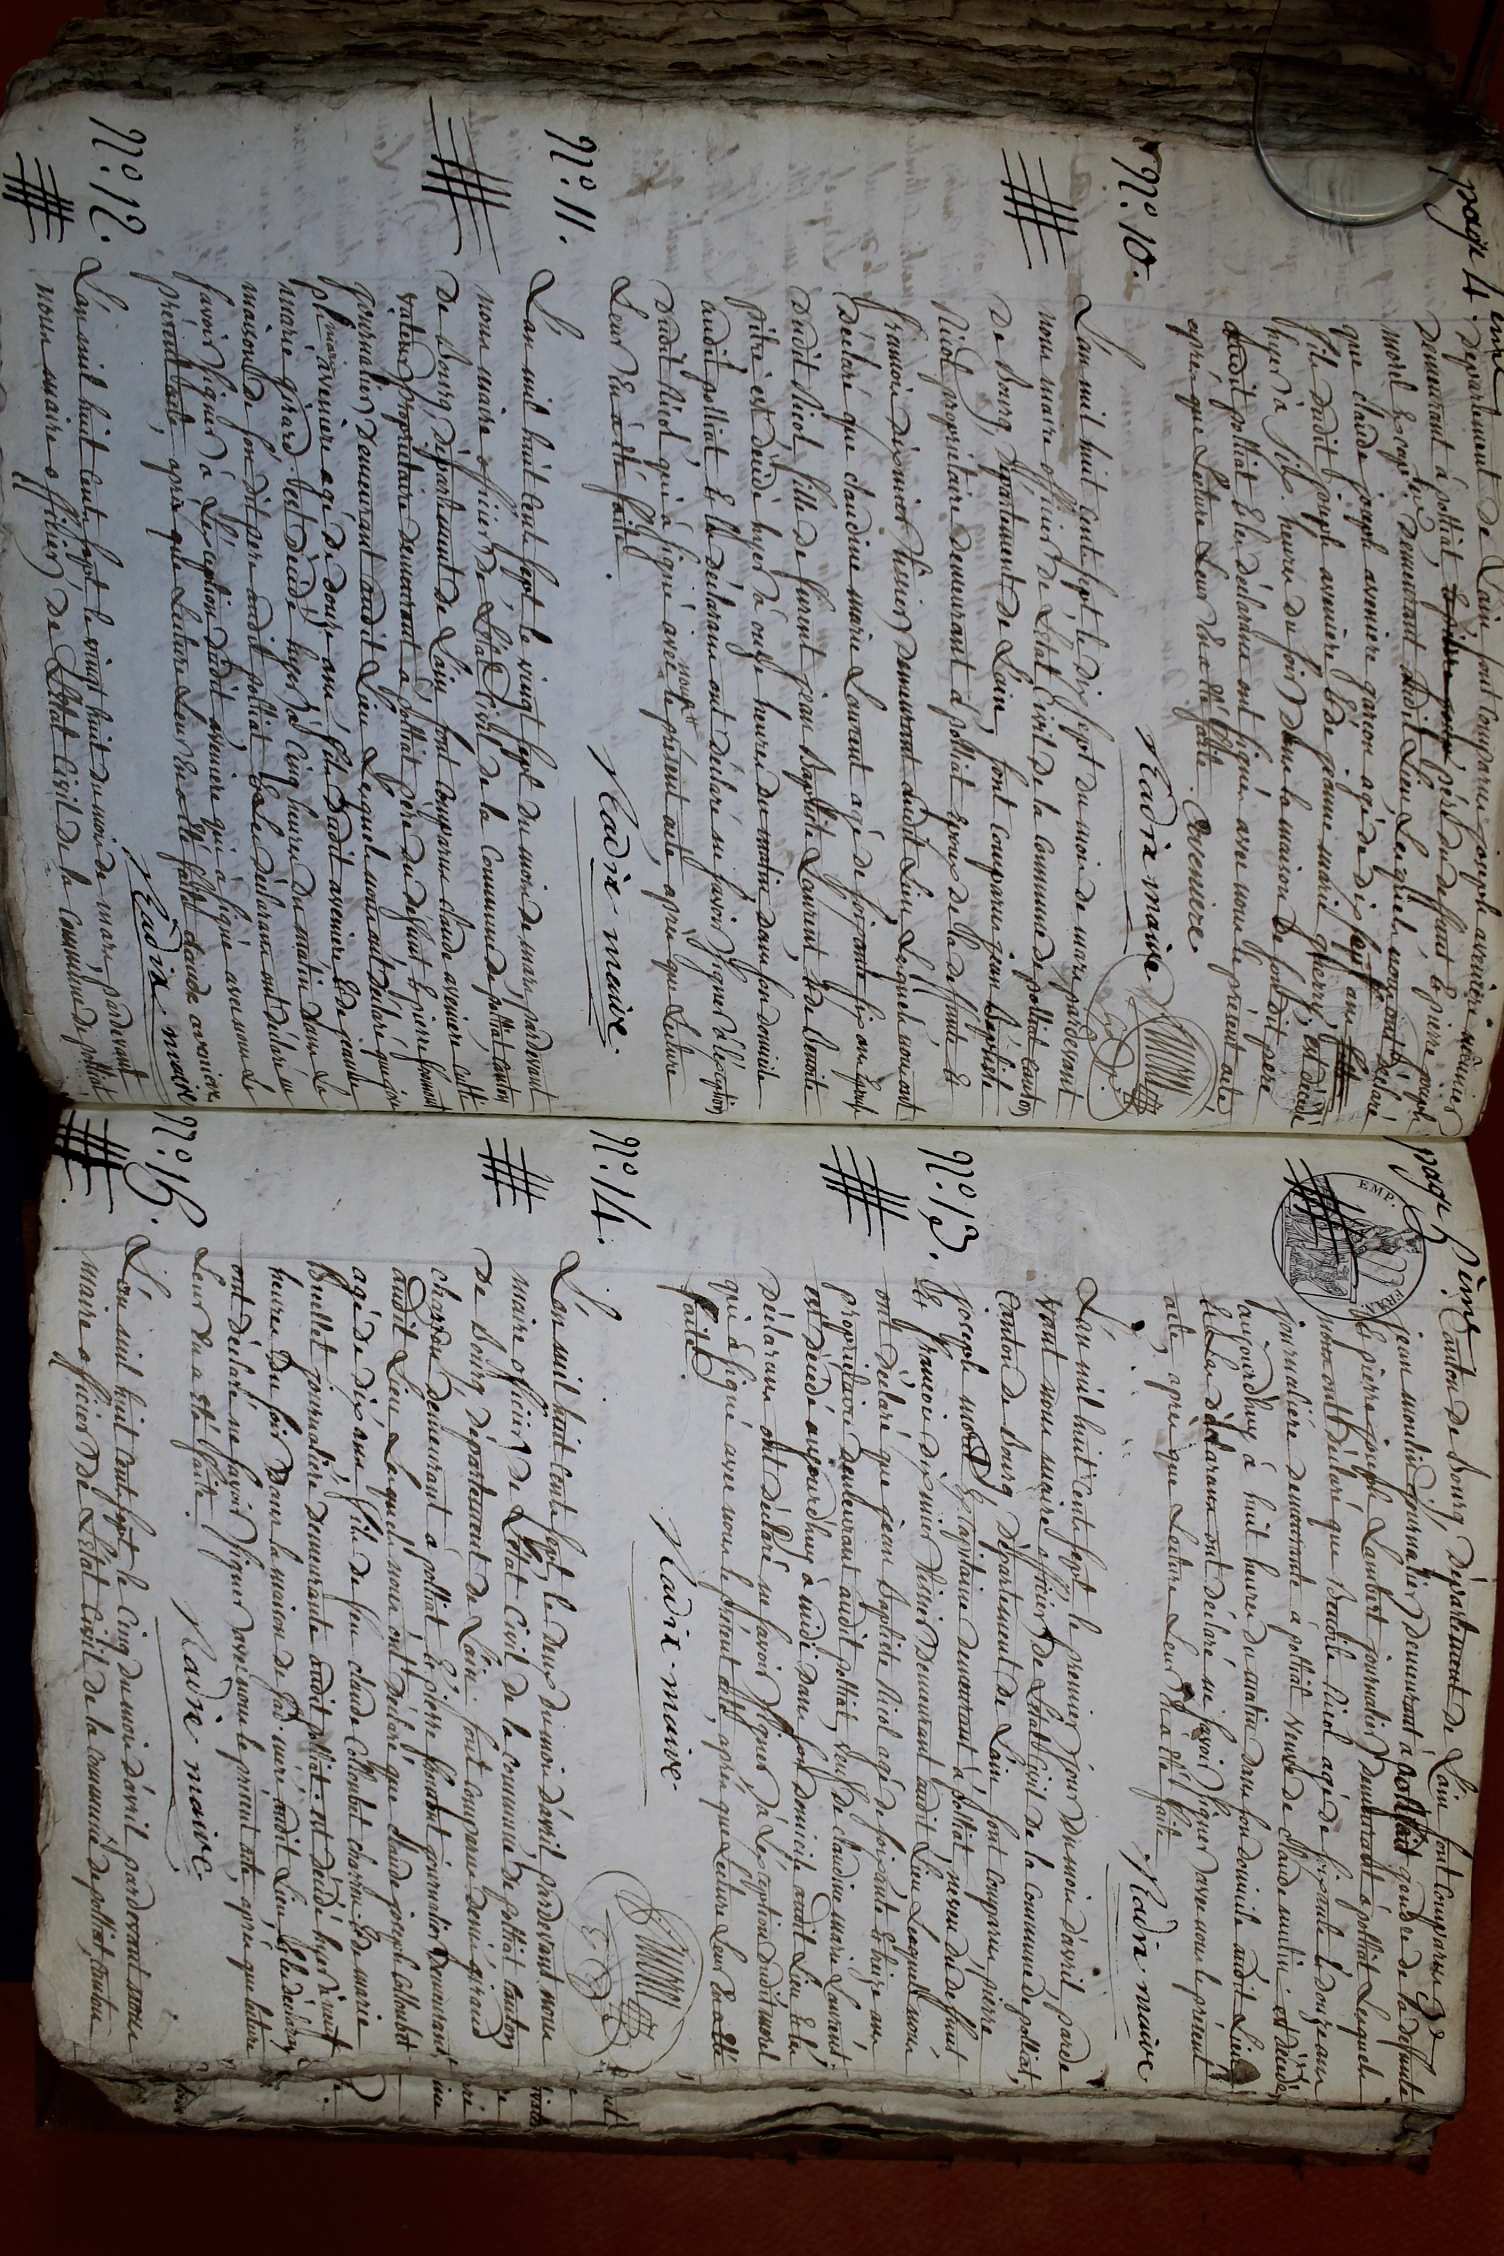 page 4ème
Département de Lain, sont comparus joseph aveniere meunier
demeurant à polliat père du deffunt & pierre joseph
morel demeurant audit Lieu, Lesquels nous ont déclaré
que claude joseph aveniere garcon agé de dix sept ans
fils dudit joseph aveniere & de jeanne marie guerry, est décédé
hyer à six heures du soir dans la maison de son dit père
audit polliat & les déclarans ont signés avec nous le présent acte
après que Lecture Leur En a été faite. aveniere
Nadix maire
N.o 10.
L'an mil huit cent sept le dix sept du mois de mars pardevant
nous maire officier de L'état Civil de la Commune de polliat canton
de Bourg, Département de Lain, sont comparus jean Baptiste
Nicol propriétaire demeurant à polliat Epoux de la deffunte &
francois dixmier tissier demeurant audit Lieu Lesquels nous ont
Déclaré que claudine marie Laurent agé de soixante six ans Epouse
dudit Nicol, fille de furent jean Baptiste Laurent, & de Benoite
pitre est décédé hyer à onze heures du matin dans son domicile
audit polliat & les déclarans ont déclaré ne savoir signer à L'exception
dudit Nicol qui a signé avec nous le présent acte, après que Lecture
Leur En a été faite.
Nadix maire.
N.o 11.
L'an mil huit cent sept le vingt sept du mois de mars pardevant
nous maire officier de L'état Civil de la Commune de polliat canton
de Bourg, département de Lain sont comparus claude aveniere culti
vateur propriétaire demeurant à polliat père du deffunt & pierre
journalier demeurant audit Lieu Lesquels nous ont déclaré que
marie aveniere agé de douze ans, fils dudit aveniere & de jeanne
marie girard est décédé hyer à Cinq heures du matin dans la
maison de son dit père audit polliat & les déclarans ont déclaré ne
savoir signer à L'exception dudit aveniere qui a signé avec nous le
présent acte, après que Lecture Leur En a été faite claude aveniere
Nadix maire
N.o 12.
L'an mil huit Cent sept le vingt huit du mois de mars, pardevant
nous maire officier de L'état Civil de la Commune de polliat
page 5ème
Canton de Bourg, Département de Lain sont comparus
jean moulin journalier demeurant à polliat gendre de la deffunte
& pierre joseph Laubert journalier demeurant à polliat Lesquels
nous ont déclaré que Benoite Nicol agé de soixante & douze ans
journalière demeurante à polliat veuve de Claude est décédé
aujourdhuy à huit heures du matin dans son domicile audit Lieu
& Les déclarans ont déclaré ne savoir signer avec nous le présent
acte, après que Lecture Leur En a été faite
Nadix maire
N.o 13.
L'an mil huit cent sept le premier jour du mois d'avril, parde
vant nous maire officier de L'état Civil de la Commune de polliat,
canton de Bourg, département de Lain sont comparus pierre
joseph morel demeurant à polliat neveu du deffunt
& francois dixmier tissier demeurant audit Lieu Lesquels nous
ont déclaré que jean Baptiste Nicol agé de soixante & treize ans
propriétaire demeurant audit polliat, veuf de claudine marie Laurent
est décédé aujourdhuy à midi dans son domicile audit Lieu & les
déclarans ont déclaré ne savoir signer à L'exception dudit morel
qui a signé avec nous le présent acte, après que Lecture Leur En a été
faite
Nadix maire.
N.o 14.
L'an mil huit cent sept le deux du mois d'avril pardevant nous
maire officier de L'état Civil de la Commune de polliat canton
de Bourg département de Lain sont comparus denis giraud
charron demeurant à polliat & pierre journalier demeurant
audit Lieu Lesquels nous ont déclaré que claude joseph Colloubet
agé de dix ans fils de feu claude Colloubet charron & de marie
Brullet journalière demeurante audit polliat est décédé hyer à neuf
heures du soir dans la maison de sa mère audit Lieu, & les déclarans
ont déclaré ne savoir signer avec nous le présent acte, après que Lecture
Leur En a été faite.
Nadix maire.
N.o 15.
L'an mil huit Cent sept le Cinq du mois d'avril pardevant nous
maire officier de L'état Civil de la Commune de polliat, Canton
EMP. FRAN